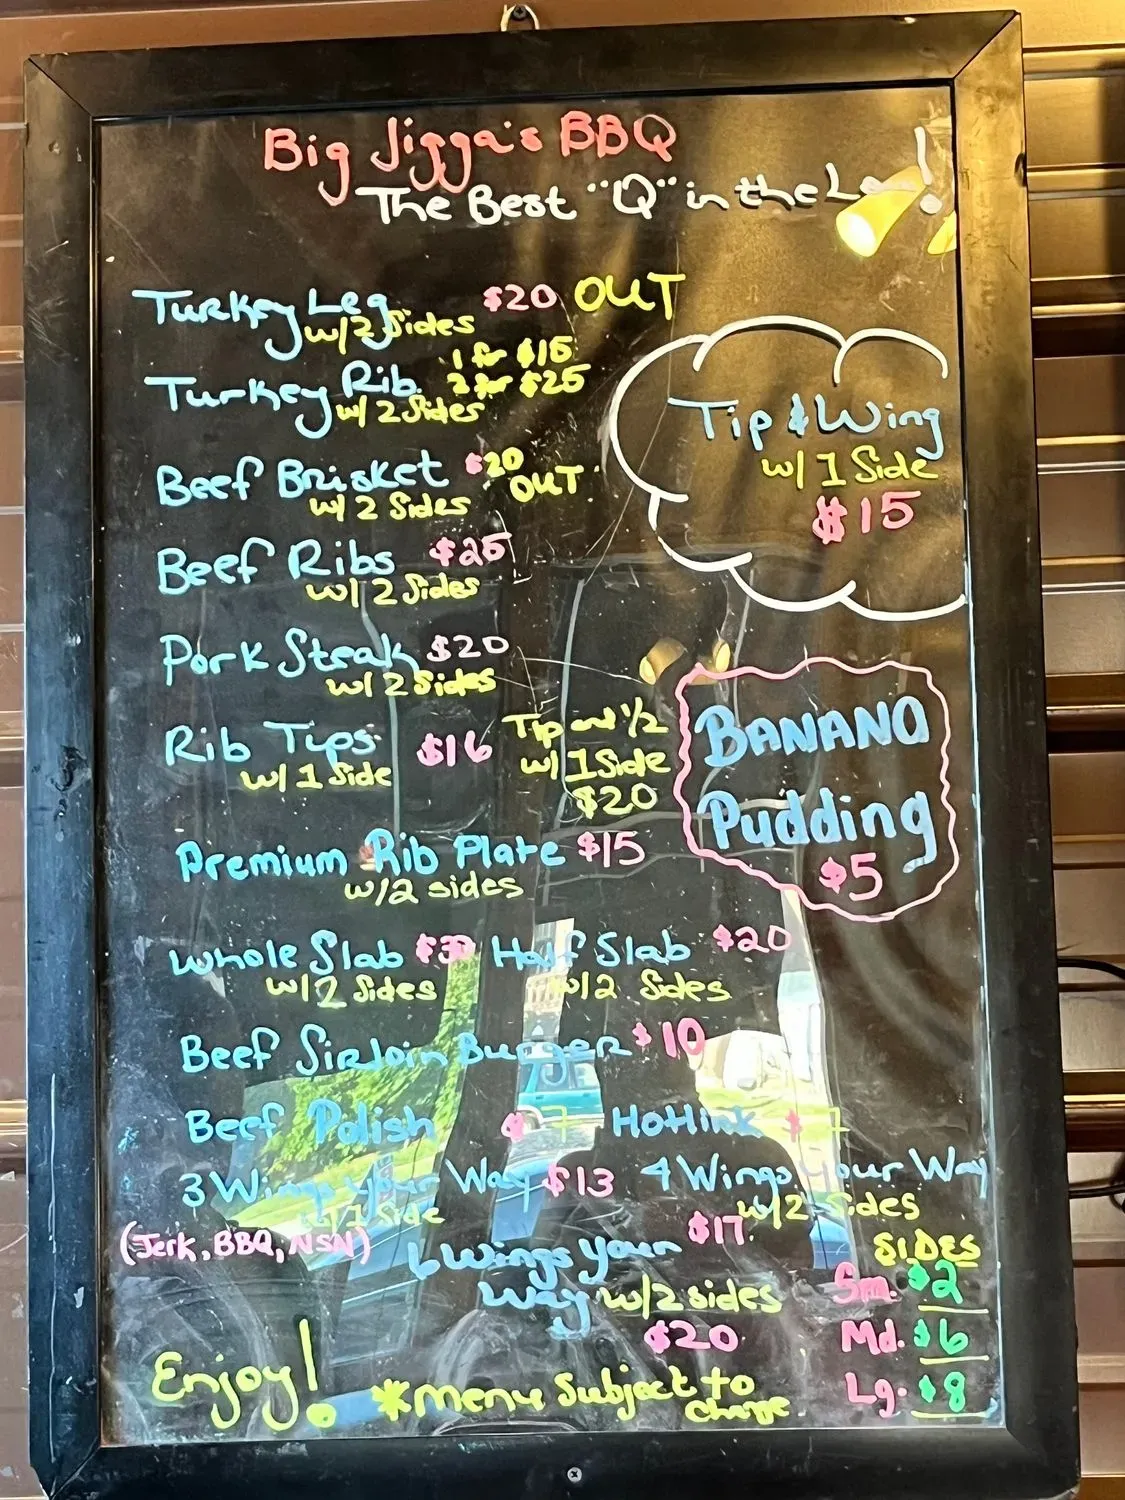 Big Jigga's BBQ
The Best "Q" in the
Turkey Leg $20 OUT
w/2 Sides
Turkey Rib 1 for $15
2 for $25
w/ 2 Sides
Tip & Wing
w/ 1 Side
$15
Beef Brisket $20
OUT
w/ 2 Sides
Beef Ribs $25
w/ 2 Sides
Pork Steak $20
w/ 2 Sides
Rib Tips $16
w/ 1 Side
Tip and 1/2
w/ 1 Side
$20
BANANA
Pudding
$5
Premium Rib Plate $15
w/2 sides
Whole Slab Half Slab $20
w/2 Sides w/2 Sides
Beef Sirloin Burger $10
Beef Polish $7 Hotlink $7
3 Wings your Way $13 4 Wings your Way
w/ 1 Side $17 w/2 Sides
(Jerk, BBQ, NSN)
6 Wings your
Way w/2 sides
$20
SIDES
Sm. $2
Md. $6
Lg. $8
Enjoy!
*Menu Subject to
change